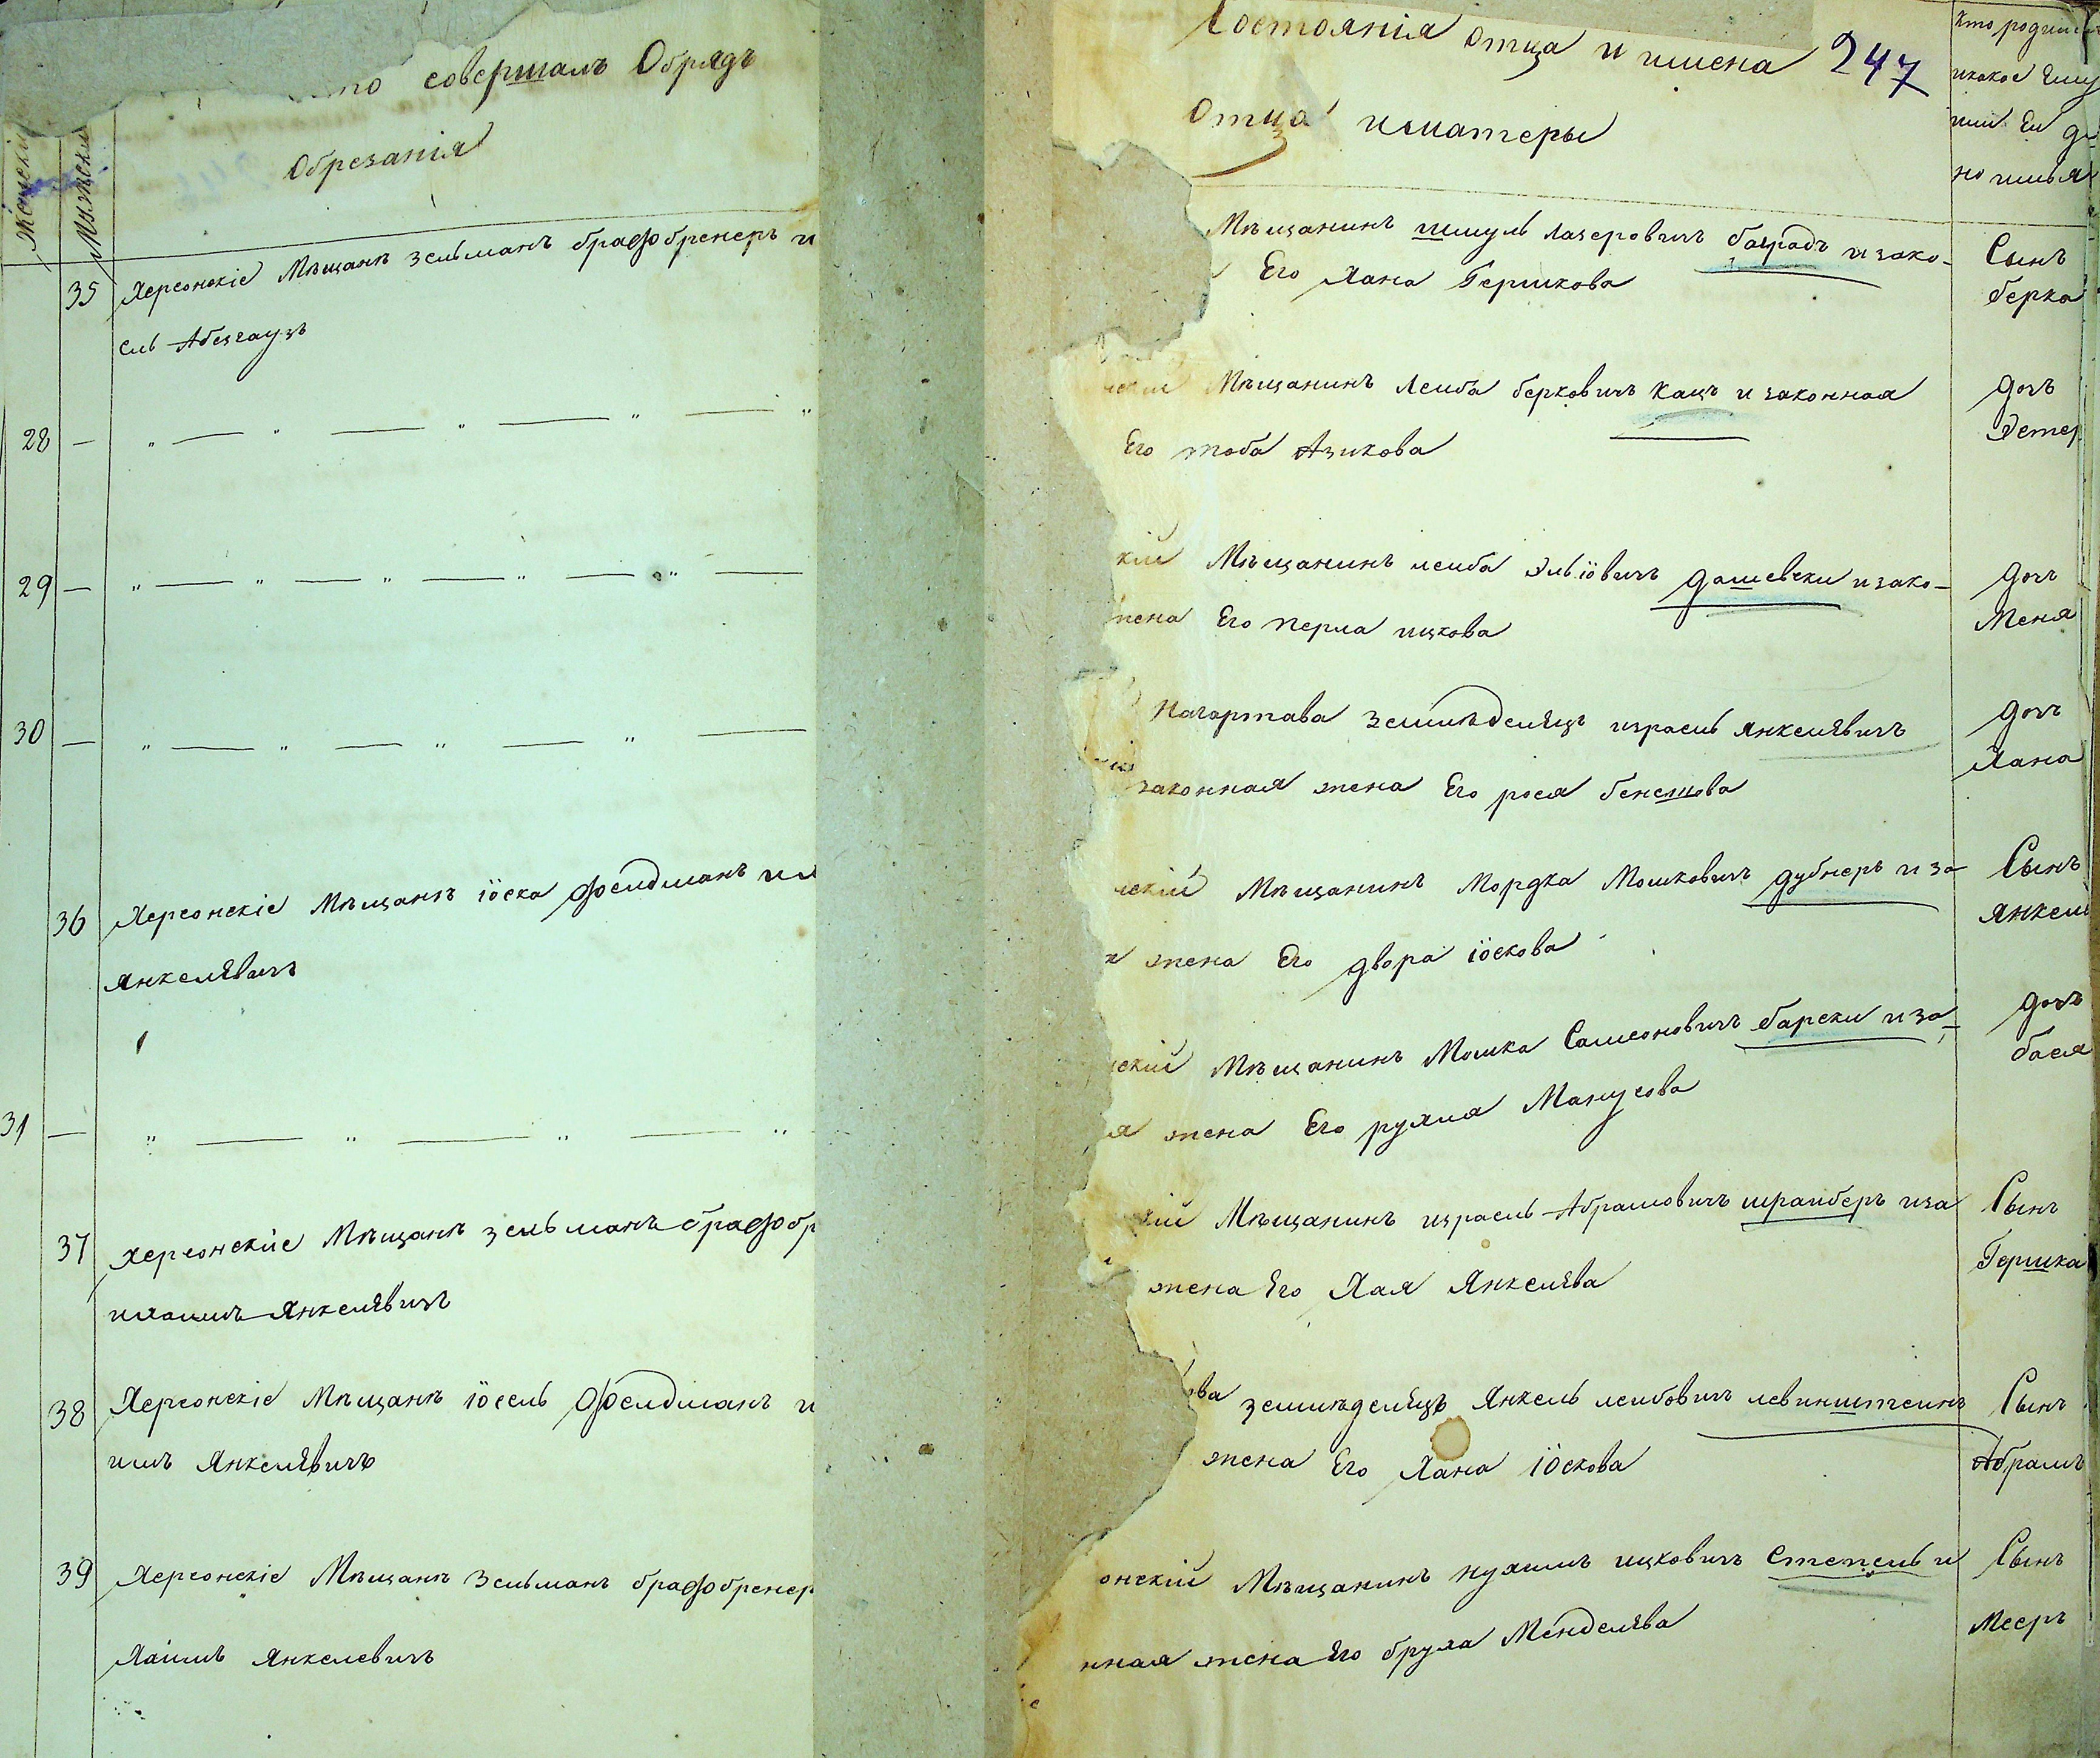 совершалъ Обрядъ
Обрезанія
Женскій
Мужскій
35 Херсонскіе Мѣщанѣ Зельманъ брафбренеръ и
сль Абезгаузъ
28 — „ — „ — „ — „ — „
29 — „ — „ — „ — „ — „ —
30 — „ — „ — „ — „ —
36 Херсонскіе Мѣщанѣ іоска Фелдманъ
Янкелѣвичъ
31 — „ — „ — „ — „
37 Херсонскіе Мѣщанѣ Зельманъ брафобр
ихаимъ Янкелѣвичъ
38 Херсонскіе Мѣщанѣ іосель Фелдманъ и
имъ Янкелѣвичъ
39 Херсонскіе Мѣщанѣ Зельманъ брафобренер
Хаимъ Янкелевичъ
Состоянія отца и имена 247
Отца иматеры
Кто родил
икакое Ему
или Ей да
но имья
Мѣщанинъ шмуль лазеровичъ баградъ и зако-
Его Хана Гершкова
Сынъ
берка
Мѣщанинъ Леиба берковичъ Кацъ и законная
Его тоба Азикова
дочъ
Эстер
кій Мѣщанинъ леиба Эльіовичъ дашевски и зако-
жена Его перла ицкова
дочъ
Меня
Нагартава Землѣделецъ израель Янкелѣвичъ
законная жена Его рося бенешова
дочъ
Хана
Мѣщанинъ Мордка Мошковичъ дубнеръ и за
жена Его двора іоскова
Сынъ
Янкель
скій Мѣщанинъ Мошка Самсоновичъ барски и за
я жена Его рухля Манусова
дочъ
бася
кій Мѣщанинъ израель Абрамовичъ шраиберъ иза
жена Его Хая Янкелѣва
Сынъ
Гершка
ва землѣделецъ Янкель леибовичъ левинштеинъ
жена Его Хана іоскова
Сынъ
Абрамъ
онскій Мѣщанинъ нухимъ ицковичъ и
нная жена Его бруха Менделѣва
Сынъ
Мееръ